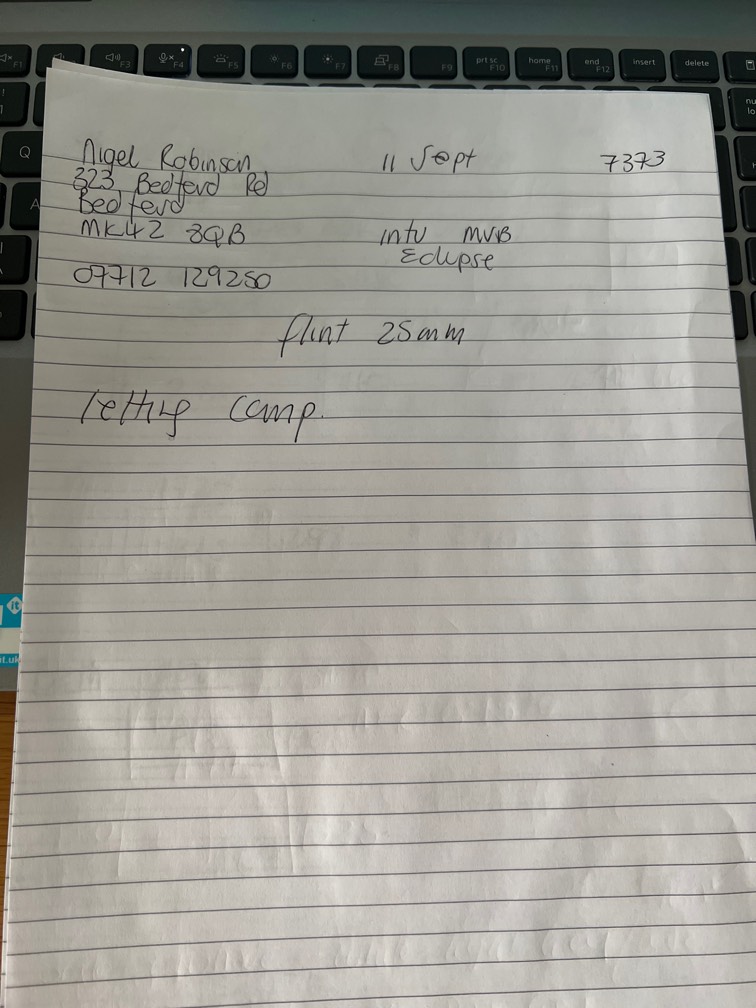 Nigel Robinson 11 Sept 7373
323 Bedford Rd
Bedford
MK42 8QB intu MVB
Eclipse
07712 129250
flint 25mm
letting comp.
F1
F3
F4
F5
F6
F7
F8
F9
prt sc F10
home F11
end F12
insert
delete
Q
A
it
it.uk